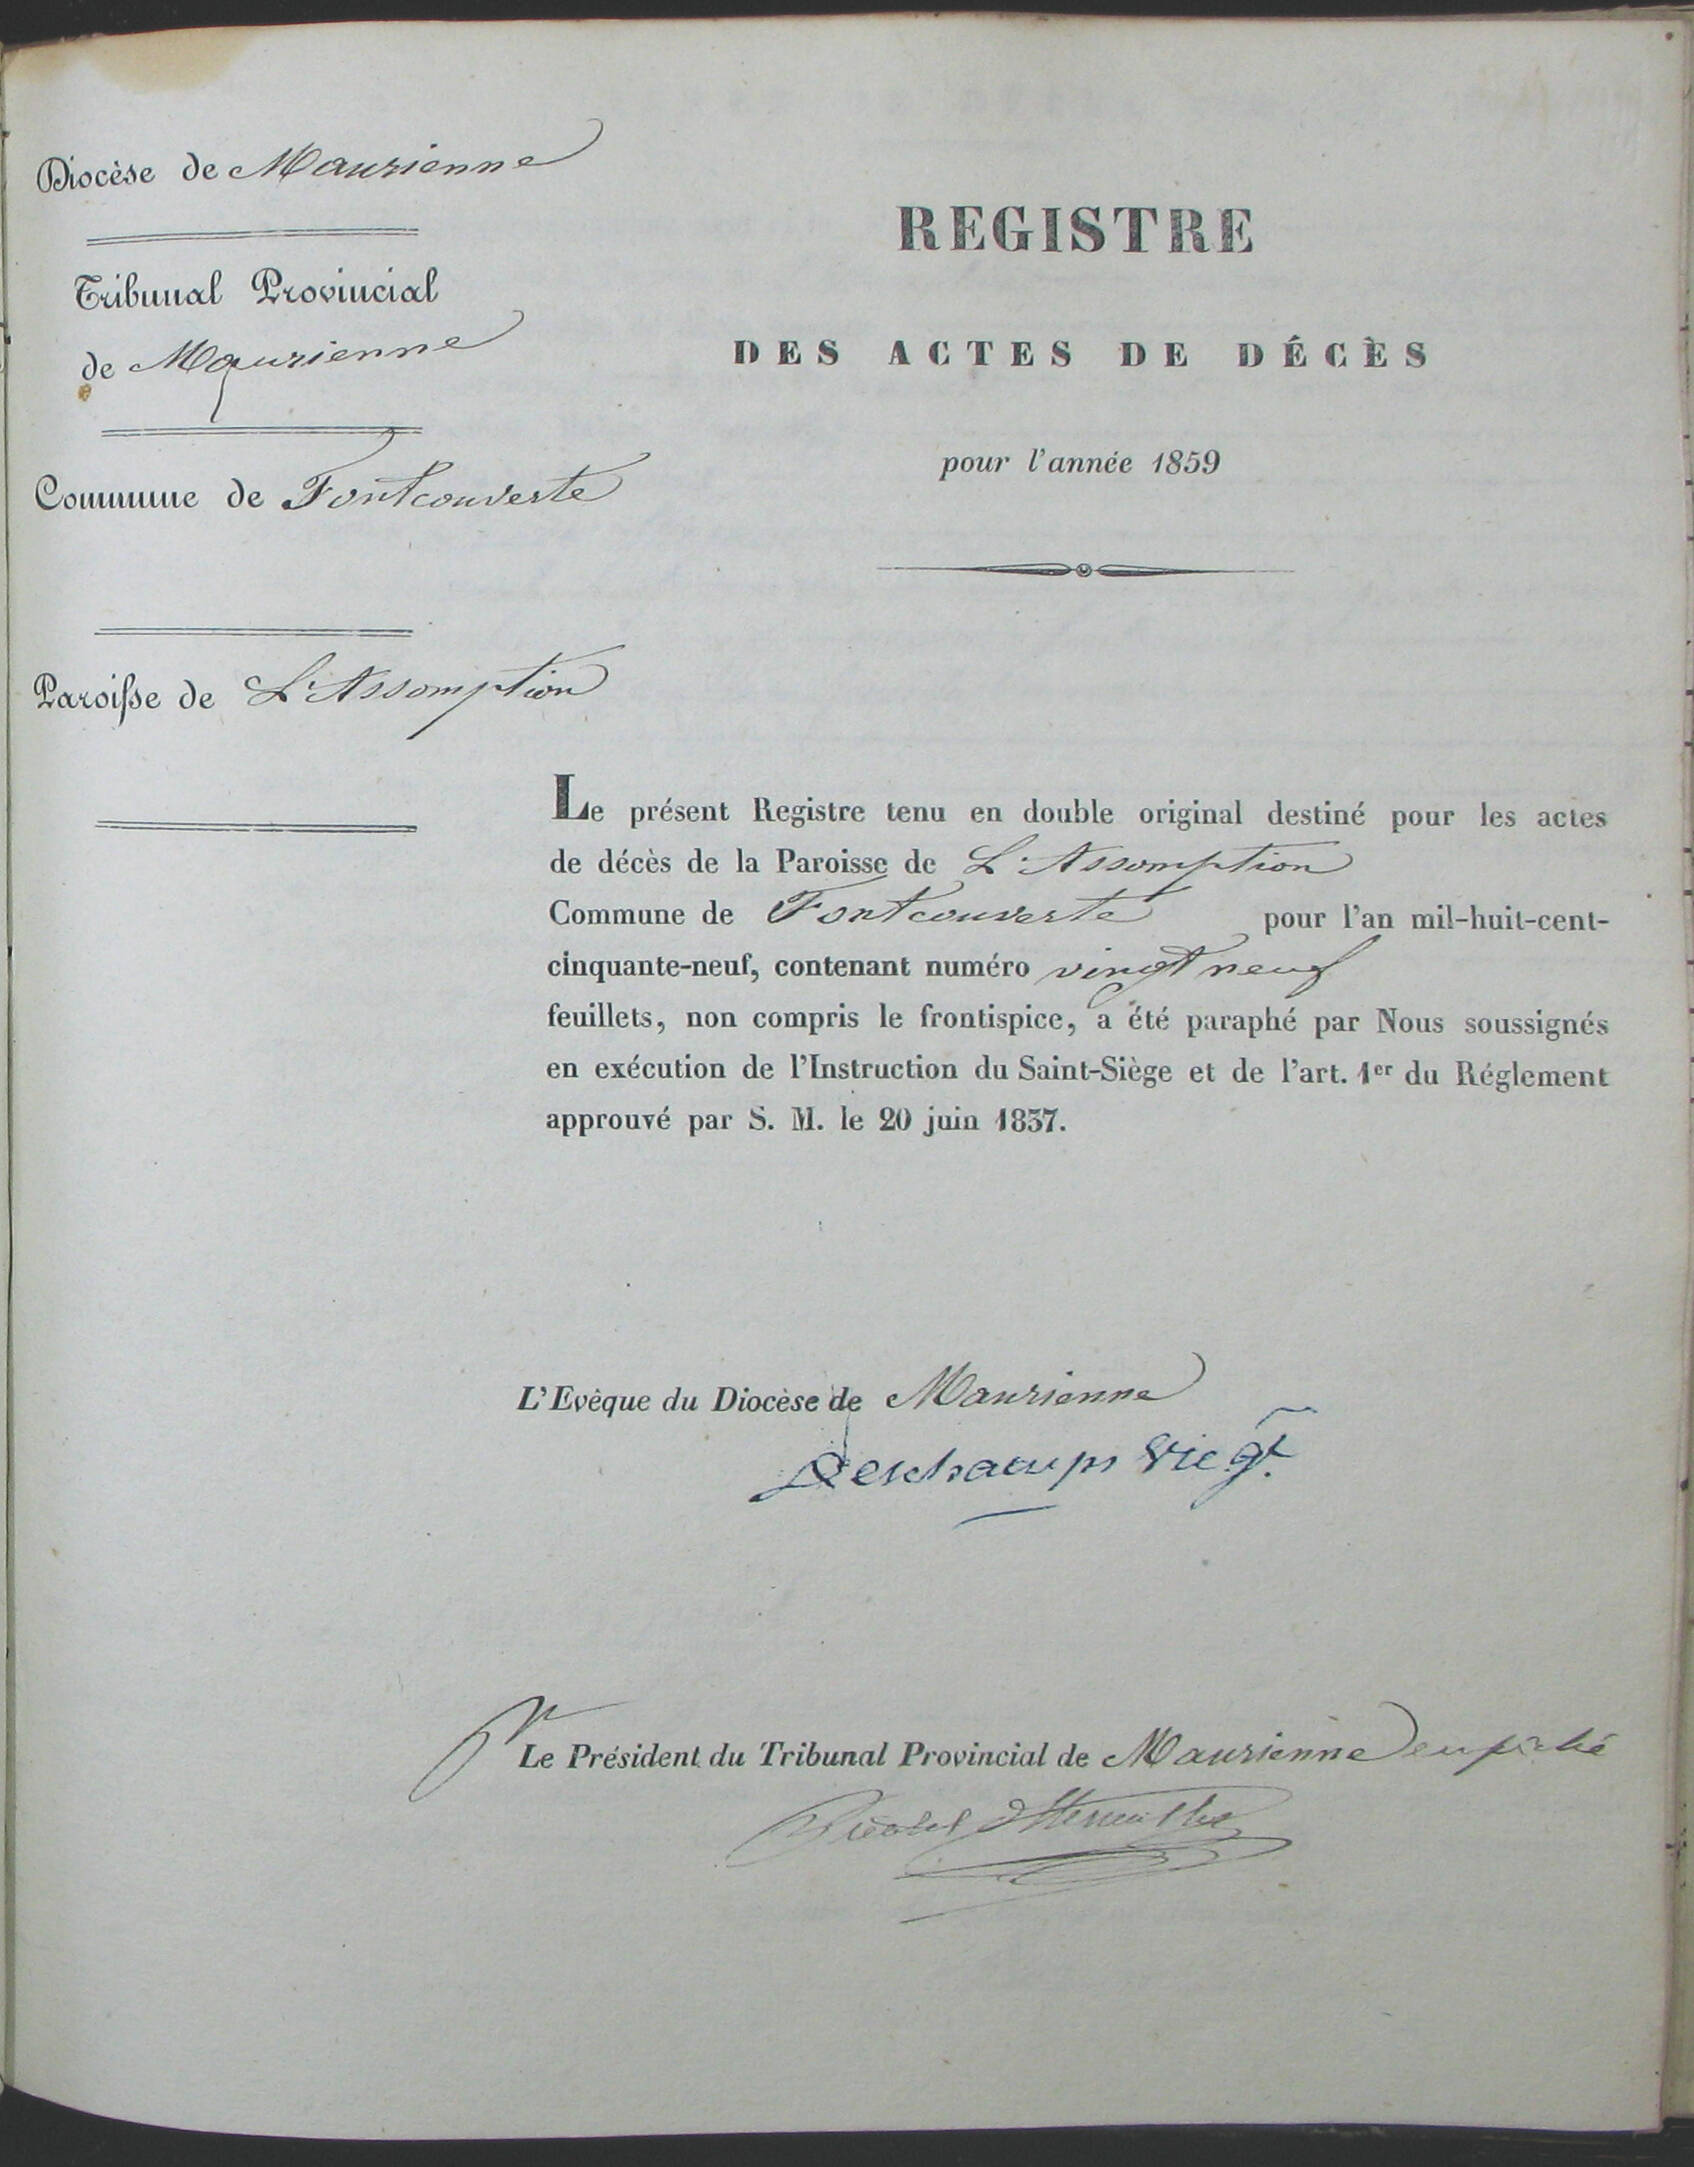 Diocèse de Maurienne
Tribunal Provincial
de Maurienne
Commune de Fontcouverte
Paroisse de L'Assomption
REGISTRE
DES ACTES DE DÉCÈS
pour l'année 1859
Le présent Registre tenu en double original destiné pour les actes
de décès de la Paroisse de L'Assomption
Commune de Fontcouverte pour l'an mil-huit-cent-
cinquante-neuf, contenant numéro vingt neuf
feuillets, non compris le frontispice, a été paraphé par Nous soussignés
en exécution de l'Instruction du Saint-Siège et de l'art. 1er du Réglement
approuvé par S. M. le 20 juin 1837.
L'Evèque du Diocèse de Maurienne
Deschamps Vic. gt.
Pr Le Président du Tribunal Provincial de Maurienne empêché